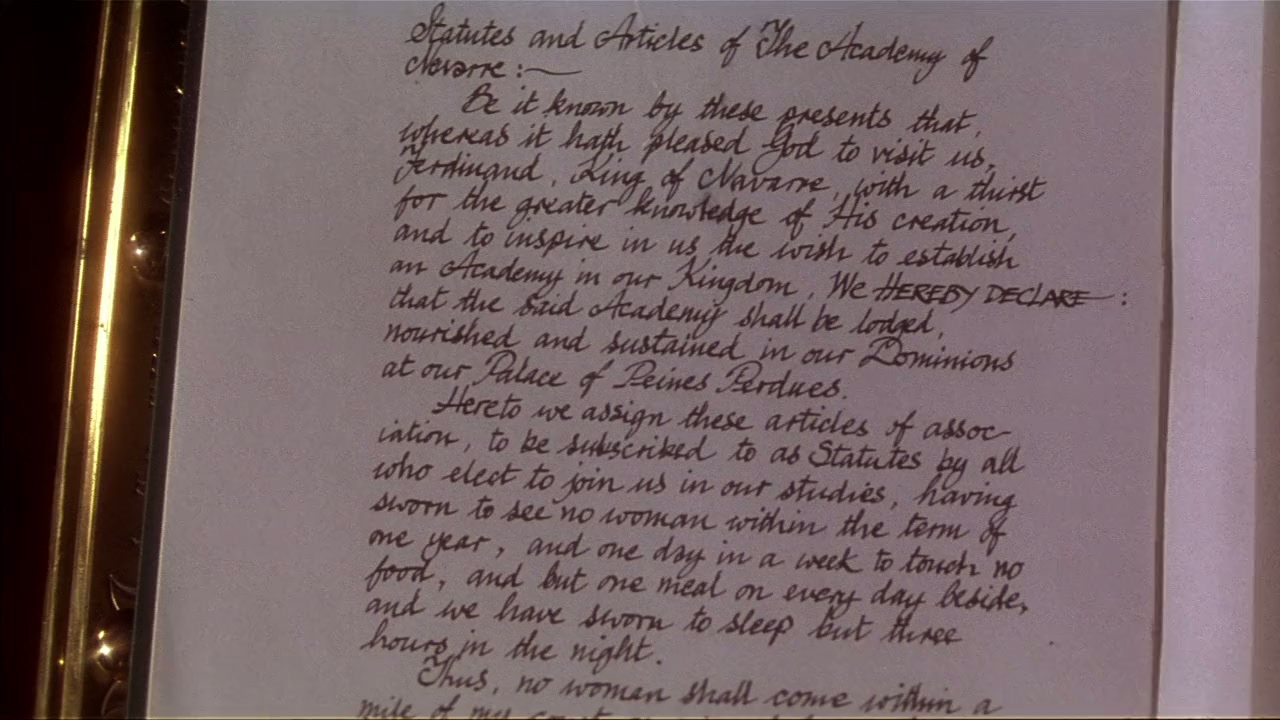 Statutes and Articles of The Academy of
Navarre :—
Be it known by these presents that,
whereas it hath pleased God to visit us,
Ferdinand, King of Navarre, with a thirst
for the greater knowledge of His creation,
and to inspire in us the wish to establish
an Academy in our Kingdom, We HEREBY DECLARE :
that the said Academy shall be lodged,
nourished and sustained in our Dominions
at our Palace of Peines Perdues.
Hereto we assign these articles of assoc-
iation, to be subscribed to as Statutes by all
who elect to join us in our studies, having
sworn to see no woman within the term of
one year, and one day in a week to touch no
food, and but one meal on every day beside,
and we have sworn to sleep but three
hours in the night.
Thus, no woman shall come within a
mile of my court